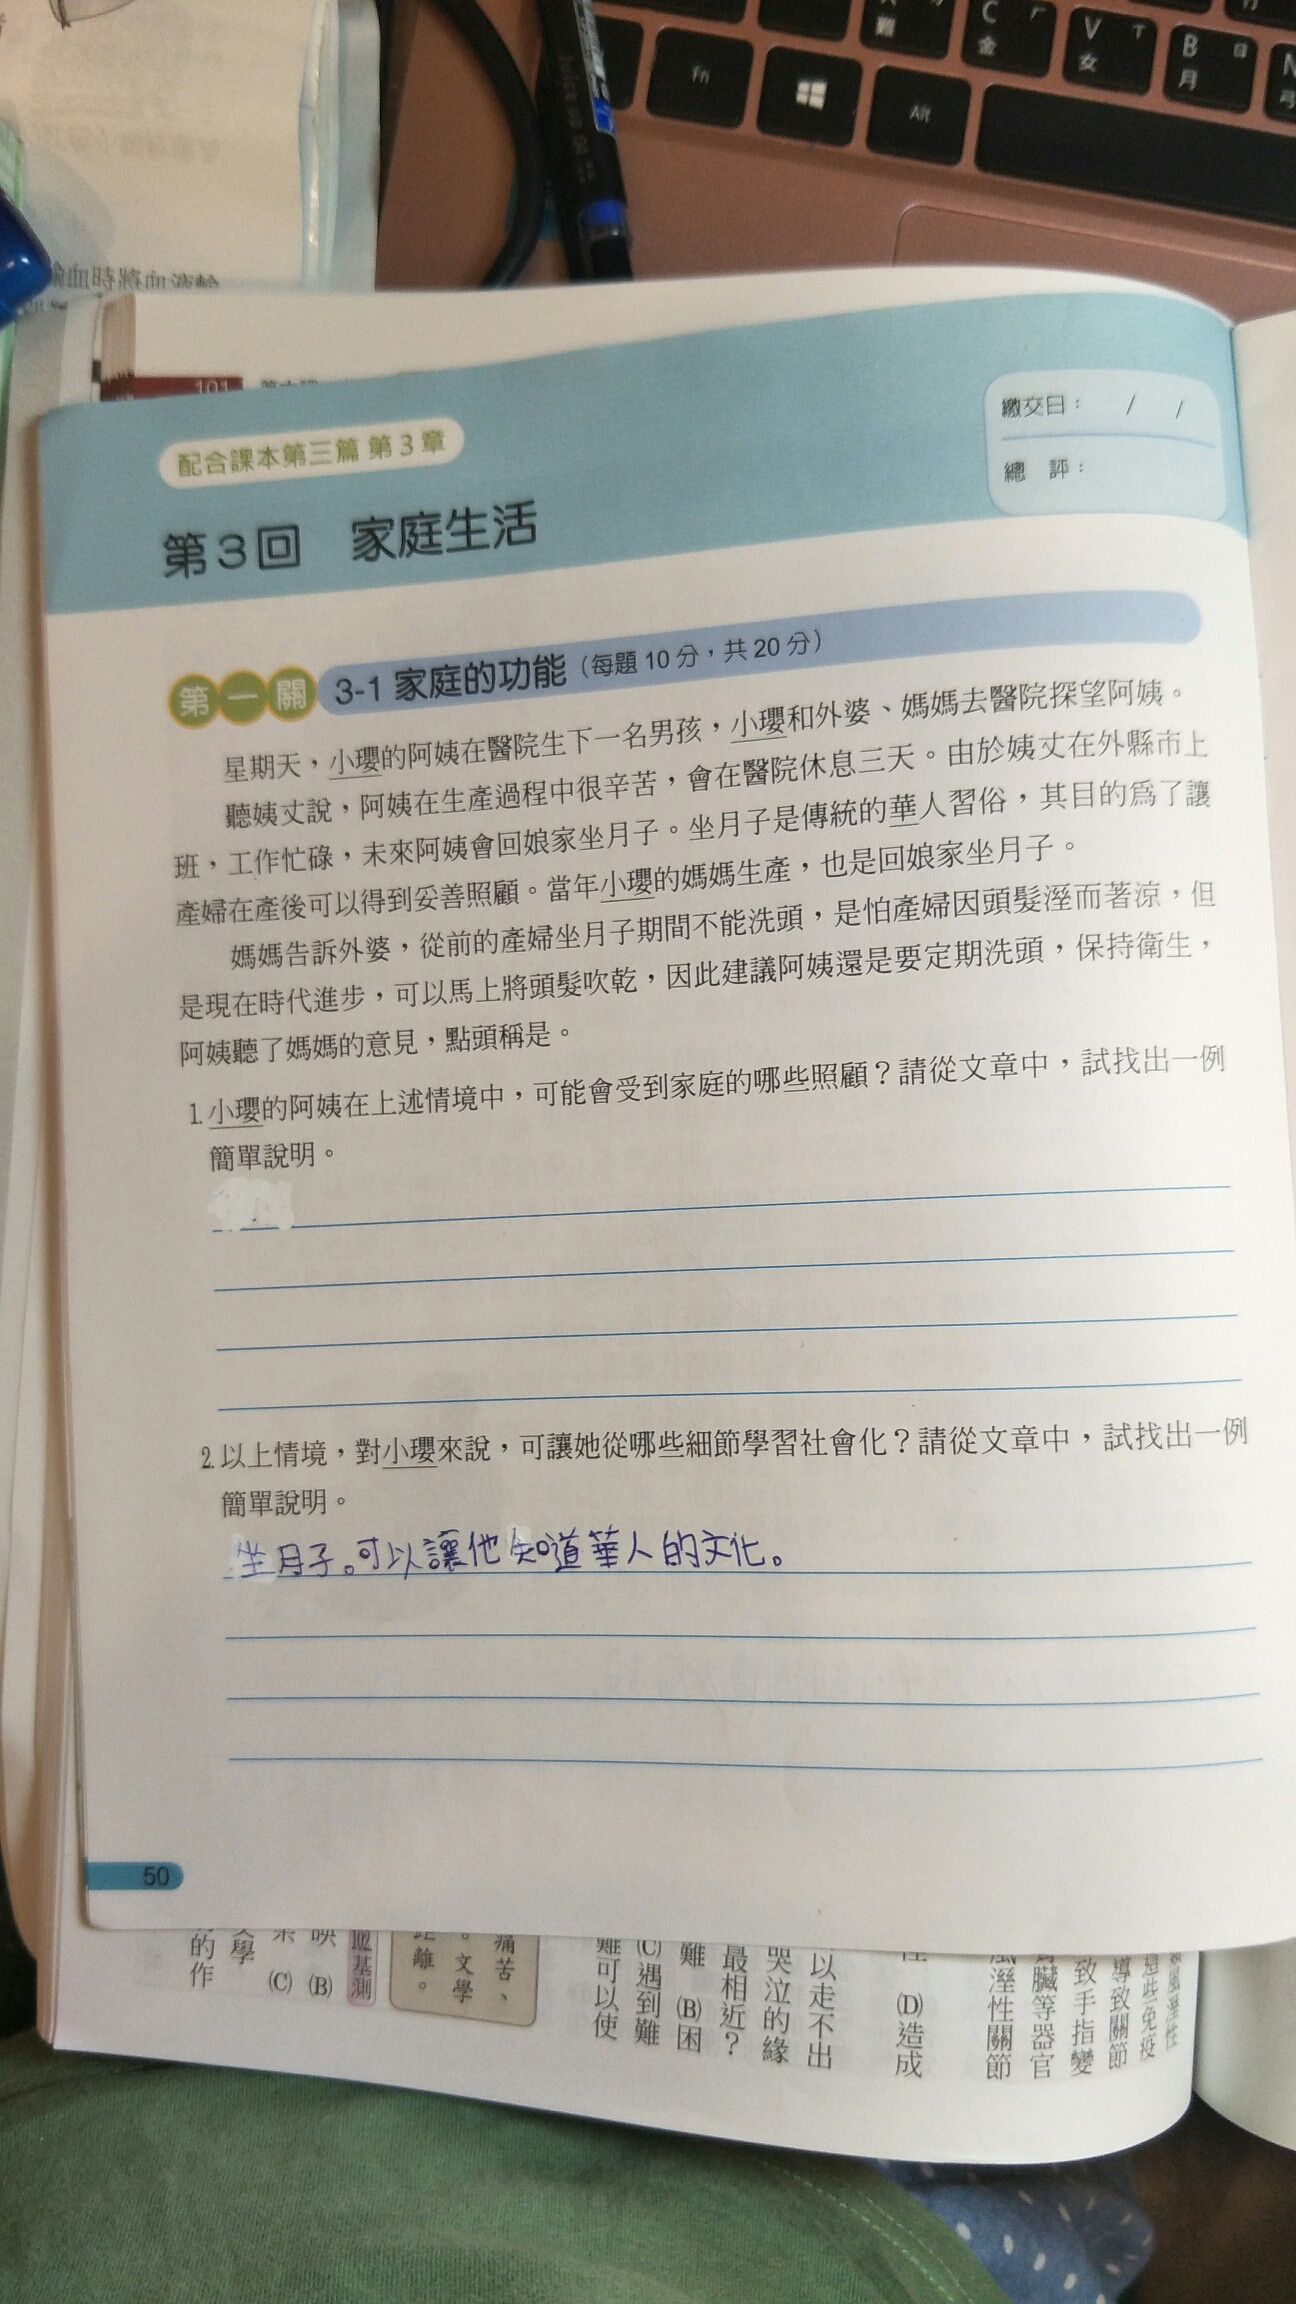 難
C
金
V
女
B
月
Fn
Alt
Juice up 04
輸血時將血液輸
101
配合課本第三篇 第3章
第3回 家庭生活
繳交日： / /
總 評：
第一關 3-1 家庭的功能（每題10分，共20分）
星期天，小瓔的阿姨在醫院生下一名男孩，小瓔和外婆、媽媽去醫院探望阿姨。
聽姨丈說，阿姨在生產過程中很辛苦，會在醫院休息三天。由於姨丈在外縣市上
班，工作忙碌，未來阿姨會回娘家坐月子。坐月子是傳統的華人習俗，其目的為了讓
產婦在產後可以得到妥善照顧。當年小瓔的媽媽生產，也是回娘家坐月子。
媽媽告訴外婆，從前的產婦坐月子期間不能洗頭，是怕產婦因頭髮溼而著涼，但
是現在時代進步，可以馬上將頭髮吹乾，因此建議阿姨還是要定期洗頭，保持衛生，
阿姨聽了媽媽的意見，點頭稱是。
1.小瓔的阿姨在上述情境中，可能會受到家庭的哪些照顧？請從文章中，試找出一例
簡單說明。
2.以上情境，對小瓔來說，可讓她從哪些細節學習社會化？請從文章中，試找出一例
簡單說明。
坐月子。可以讓他知道華人的文化。
50
導致關節
致手指變
臟等器官
風溼性關節
(D)造成
以走不出
哭泣的緣
最相近？
難 (B)困
(C)遇到難
難可以使
痛苦、
。文學
距離。
基測
映 (B)
(C)
文學
的作